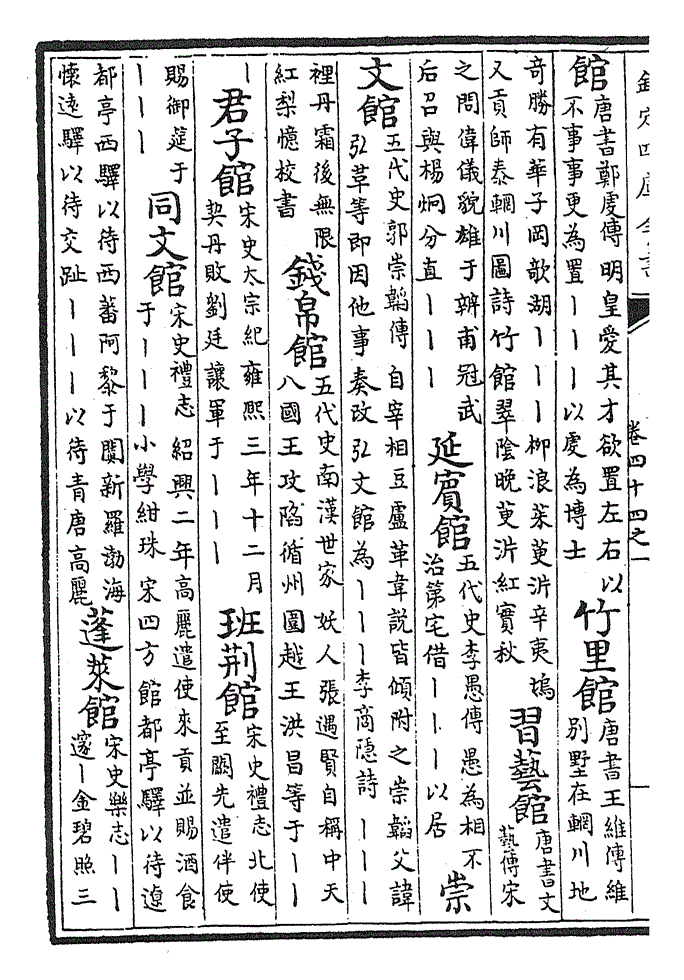 欽定四庫全書
卷四十四之一
館
唐書鄭虔傳明皇愛其才欲置左右以
不事事更為置丨丨丨以虔為博士
竹里館
唐書王維傳維
别墅在輞川地
奇勝有華子岡欹湖丨丨丨柳浪茱萸沜辛夷塢
又貢師泰輞川圖詩竹館翠陰晚萸沜紅實秋
習藝館
唐書文
藝傳宋
之問偉儀貌雄于辨甫冠武
后召與楊炯分直丨丨丨
延賓館
五代史李愚傳愚為相不
治第宅借丨丨丨以居
崇
文館
五代史郭崇韜傳自宰相豆盧革韋說皆傾附之崇韜父諱
弘革等即因他事奏改弘文館為丨丨丨李商隱詩丨丨丨
裡丹霜後無限
紅梨憶校書
錢帛館
五代史南漢世家妖人張遇賢自稱中天
八國王攻陷循州圍越王洪昌等于丨丨
丨
君子館
宋史太宗紀雍熙三年十二月
契丹敗劉廷讓軍于丨丨丨
班荆館
宋史禮志北使
至闕先遣伴使
賜御筵于
丨丨丨
同文館
宋史禮志紹興二年高麗遣使來貢並賜酒食
于丨丨丨小學紺珠宋四方館都亭驛以待遼
都亭西驛以待西蕃阿黎于闐新羅渤海
懷逺驛以待交趾丨丨丨以待青唐高麗
蓬萊館
宋史樂志丨丨
邃丨金碧照三